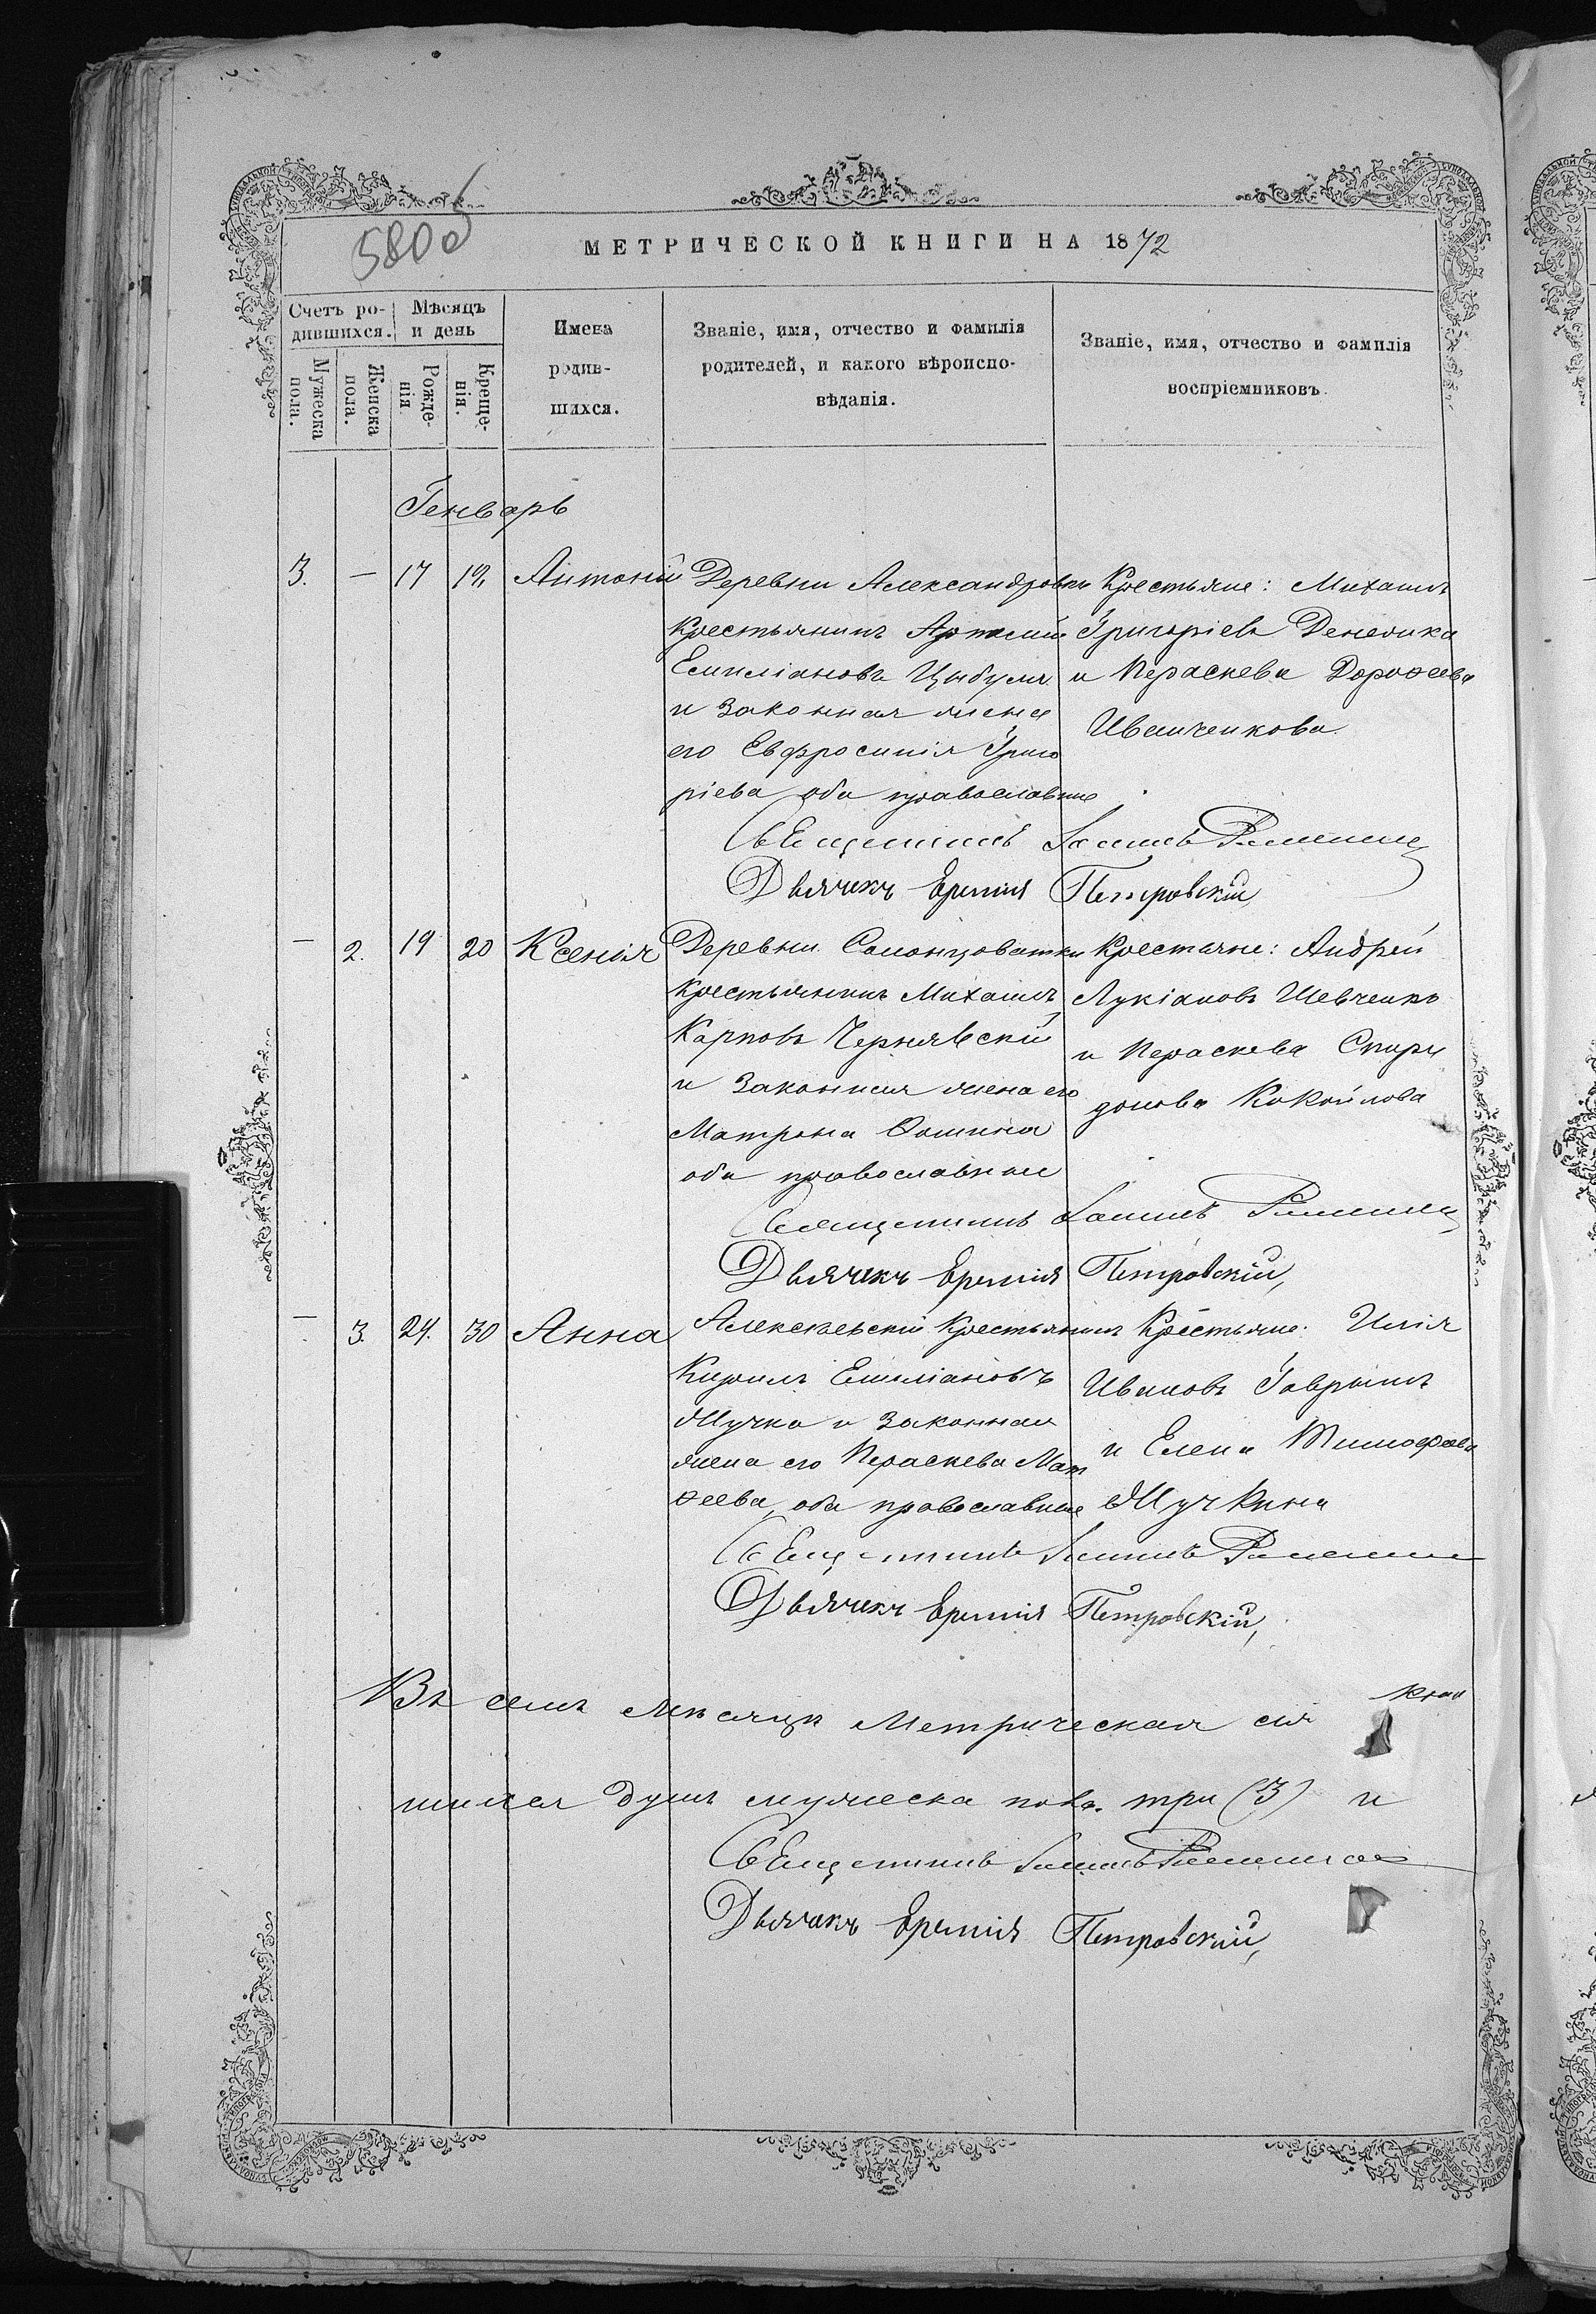 580 об
МЕТРИЧЕСКОЙ КНИГИ НА 1872
Счетъ ро-
дившихся.
Мѣсяцъ
и день
Мужеска
пола.
Женска
пола.
Рожде-
нія
Креще-
нія.
Имена
родив-
шихся.
Званіе, имя, отчество и фамилія
родителей, и какого вѣроиспо-
вѣданія.
Званіе, имя, отчество и фамилія
воспріемниковъ.
Генварь
3. — 17 19, Антоній
Деревни Александровки
крестьянинъ Артемій
Емиліановъ Цыбуля
и законная жена
его Евфросинія Григо
ріева оба православные
Крестьяне: Михаилъ
Григоріевъ
и Пераскева Дорофеева
Иванченкова.
Священникъ
Дьячекъ Еремія Петровскій,
— 2. 19 20 Ксенія
Деревни Солонцоватки
крестьянинъ Михаилъ
Карповъ Чернявскій
и законная жена его
Матрона Фомина
оба православные
Крестьяне: Андрей
Лукіановъ Шевченко
и Пераскева Спири
донова
Священникъ
Дьячекъ Еремія Петровскій,
— 3. 24. 30 Анна
Алексѣевскій крестьянинъ
Кирилъ Емиліановъ
Мучка и законная
жена его Пераскева Мат
ѳеева, оба православные
Крестьяне: Илія
Ивановъ Гаврышъ
и Елена Тимофеева
Мучкина
Священникъ
Дьячекъ Еремія Петровскій,
Въ семъ мѣсяцѣ Метрическая сія
шихся душъ мужеска пола. три (3) и
Священникъ
Дьячекъ Еремія Петровскій,